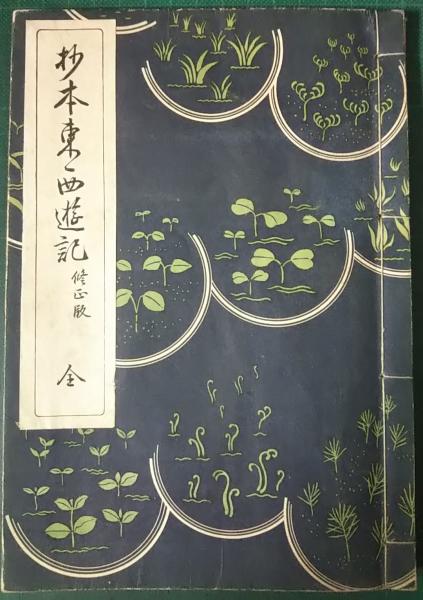 抄本東西遊記
修正版
全